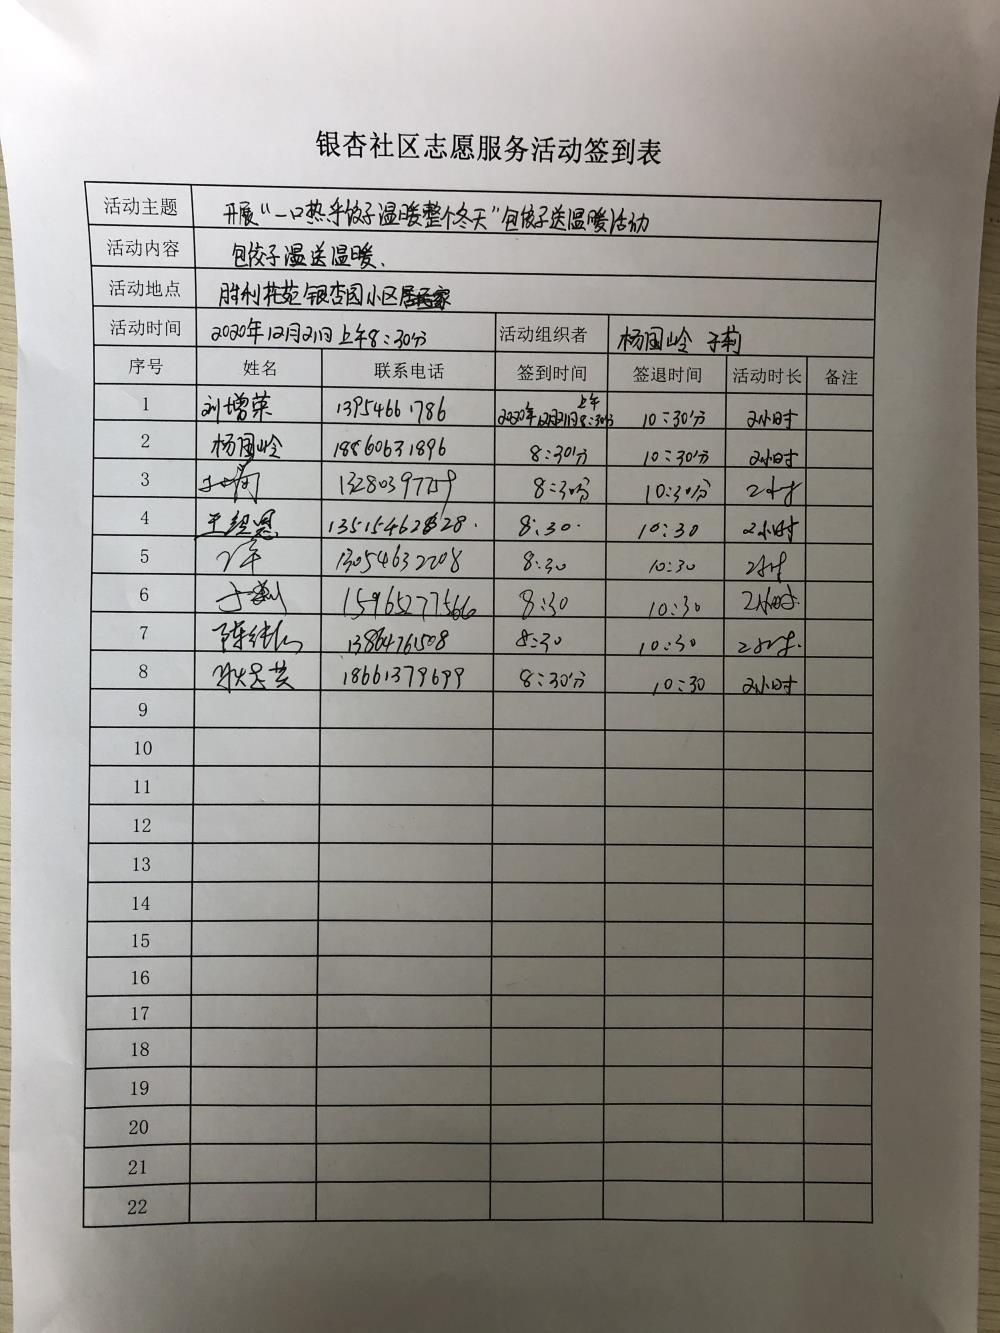 银杏社区志愿服务活动签到表
活动主题 开展“一口热乎饺子温暖整个冬天”包饺子送温暖活动
活动内容 包饺子温送温暖、
活动地点 胜利花苑银杏园小区居民家
活动时间 2020年12月21日上午8:30分 活动组织者 杨国岭 于莉
序号 姓名 联系电话 签到时间 签退时间 活动时长 备注
1 刘增荣 13954661786 2020年12月21日上午8:30分 10:30分 2小时
2 杨国岭 18860631896 8:30分 10:30分 2小时
3 13280397759 8:30分 10:30分 2小时
4 8:30. 10:30 2小时
5 13054632208 8:30 10:30 2小时
6 15965277566 8:30 10:30 2小时.
7 13864761508 8:30 10:30 2小时.
8 18661379699 8:30分 10:30 2小时
9
10
11
12
13
14
15
16
17
18
19
20
21
22